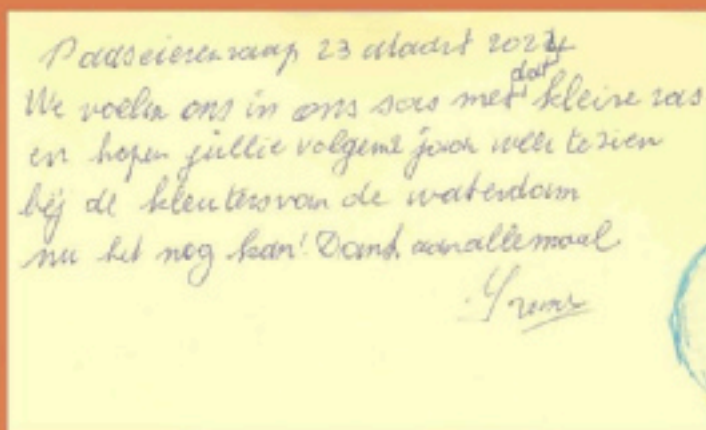 Paaseierenraap 23 Maart 2024
We voelen ons in ons sas met dat kleine ras
en hopen jullie volgend jaar weer te zien
bij de kleuters van de waterdam
nu het nog kan! Dank aan allemaal